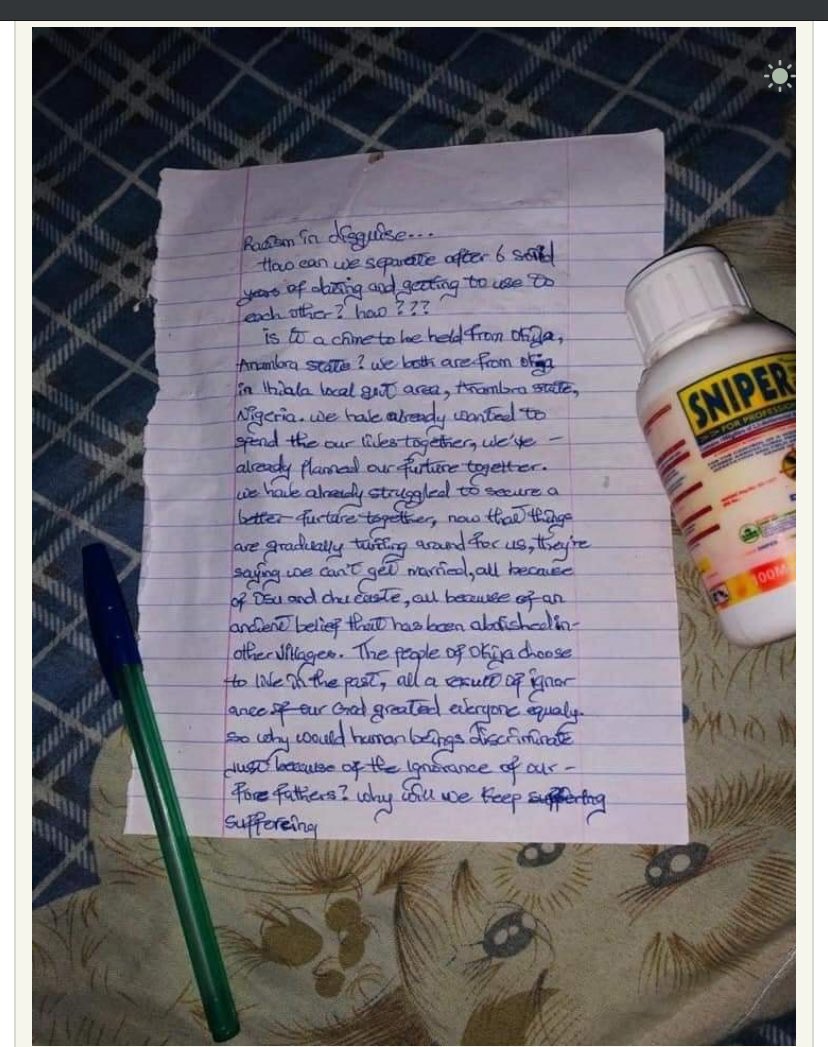 Racism in disguise...
How can we separate after 6 solid
years of dating and getting to use to
each other? how ???
is it a crime to be held from Okija,
Anambra state? we both are from Okija
in Ihiala local govt area, Anambra state,
Nigeria. we have already wanted to
spend the our lives together, we've -
already planned our furture together.
we have already struggled to secure a
better furture together, now that things
are gradually turning around for us, they're
saying we can't get married, all because
of Osu and chu caste, all because of an
ancient belief that has been abolished in-
other villages. The people of Okija choose
to live in the past, all a result of ignor
ance of our God greated everyone equaly.
so why would human beings discriminate
just because of the ignorance of our -
fore fathers? why will we keep suffering
suffereing
SNIPER
FOR PROFESSIO
100M